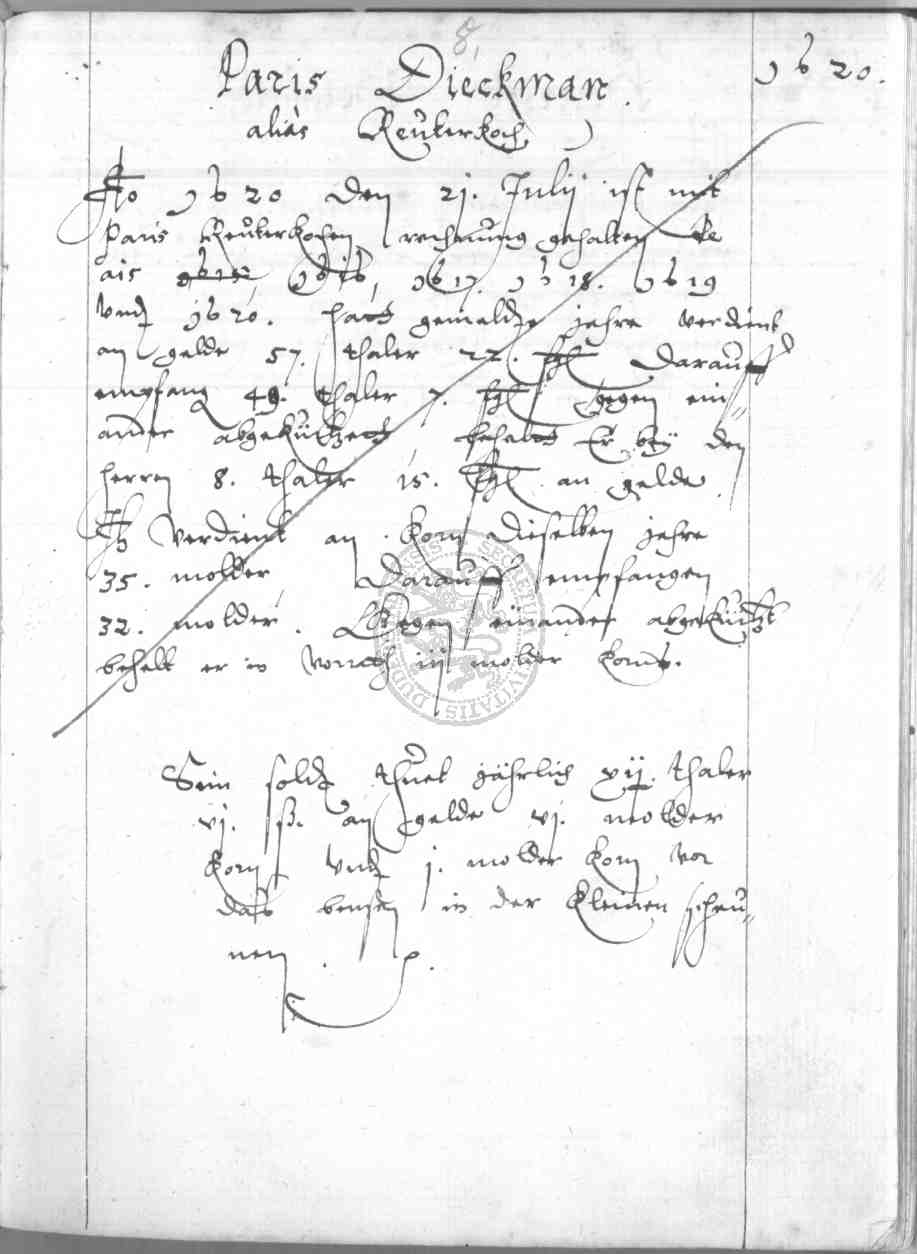 8,
1620.
Paris Dieckman
alias Reuterkoch
Ao 1620 den 21. Julij ist mit
Paris Reuterkochen rechnung gehalten de
ais 1615, 1616, 1617. 1618. 1619
vnd 1620. hatt gemelde jahre verdient
an gelde 57. thaler 22. ßgl darauff
empfang 49. thaler 7. ßgl gegen ein„
ander abgekürtzett behaltt Er bey den
herren 8. thaler 15. ßgl an gelde
It verdient an korn dieselben jahre
35. molder darauff empfangen
32. molder. Gegen einander abgekürtzt
behelt er in vorrath iij molder korns.
Sein soldt thuet jährlich xij. thaler
vj. ß. an gelde vj. molder
korn vnd j. molder korn vor
das bensen in der kleinen scheu„
nen
SECRETUM CIVITATIS DUDER